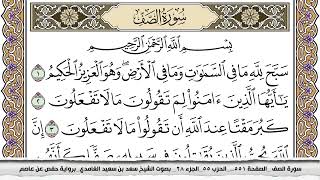 سُورَةُ الصَّفِّ
بِسْمِ اللَّهِ الرَّحْمَٰنِ الرَّحِيمِ
سَبَّحَ لِلَّهِ مَا فِي السَّمَٰوَٰتِ وَمَا فِي الْأَرْضِ ۖ وَهُوَ الْعَزِيزُ الْحَكِيمُ ١
يَٰٓأَيُّهَا الَّذِينَ ءَامَنُوا۟ لِمَ تَقُولُونَ مَا لَا تَفْعَلُونَ ٢
كَبُرَ مَقْتًا عِندَ اللَّهِ أَن تَقُولُوا۟ مَا لَا تَفْعَلُونَ ٣ إِنَّ
اللَّهَ يُحِبُّ الَّذِينَ يُقَٰتِلُونَ فِي سَبِيلِهِ صَفًّا كَأَنَّهُم
سورة الصف _ الصفحة ٥٥١ _ الحزب ٥٥ _ الجزء ٢٨ _ بصوت الشيخ سعد بن سعيد الغامدي _ برواية حفص عن عاصم